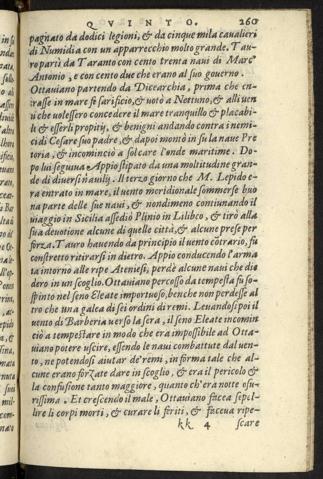 QVINTO. 260
pagnato da dodici legioni, & da cinque mila cavalieri
di Numidia con un apparrecchio molto grande. Tau
ro partì da Taranto con cento trenta naui di Marc'
Antonio, e con cento due che erano al suo governo.
Ottauiano partendo da Dicearchia, prima che en-
trasse in mare fe sarificio, & uotò a Nettuno, & alli uen
ti che uolessero concedere il mare tranquillo & placabi-
li & esserli propitij, & benigni andando contra i nemi-
ci di Cesare suo padre, & dapoi montò in su la naue Pre
toria, & incominciò a solcare l'onde maritime. Do-
po lui seguiua Appio stipato da una moltitudine gran-
de di diuersi nauilij. Il terzo giorno che M. Lepido e-
ra entrato in mare, il uento meridionale sommerse buo
na parte delle sue naui, & nondimeno continuando il
uiaggio in Sicilia assediò Plinio in Lilibeo, & tirò alla
sua deuotione alcune di quelle città, & alcune prese per
forza. Tauro hauendo da principio il uento cōtrario, fu
constretto ritirarsi in dietro. Appio conducendo l'arma
ta intorno alle ripe Ateniesi, perdè alcune naui che die
dero in un scoglio. Ottauiano percosso da tempesta fu so-
spinto nel seno Eleate importuoso, benche non perdesse al
tro che una galea di sei ordini di remi. Leuandosi poi il
uento di Barberia uerso la sera, il seno Eleate incomin
ciò a tempestare in modo che era impossibile ad Otta-
uiano potere uscire, essendo le naui combattute dal uen-
to, ne potendosi aiutar de' remi, in forma tale che al-
cune erano forzate dare in scoglio, & era il pericolo &
la confusione tanto maggiore, quanto ch'era notte oscu-
rissima. Et crescendo il male, Ottauiano faceua sepel-
lire li corpi morti, & curare li feriti, & faceua ripe-
kk 4 scare